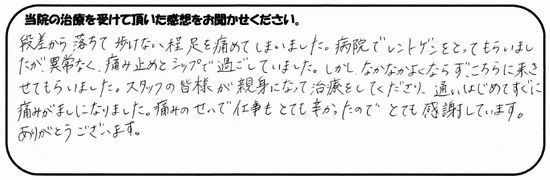 当院の治療を受けて頂いた感想をお聞かせください。
段差から落ちて歩けない程足を痛めてしまいました。病院でレントゲンをとってもらいまし
たが異常なく、痛み止めとシップで過ごしていました。しかし、なかなかよくならず、こちらに来さ
せてもらいました。スタッフの皆様が親身になって治療をしてくださり、通いはじめてすぐに
痛みがましになりました。痛みのせいで仕事もとても辛かったのでとても感謝しています。
ありがとうございます。